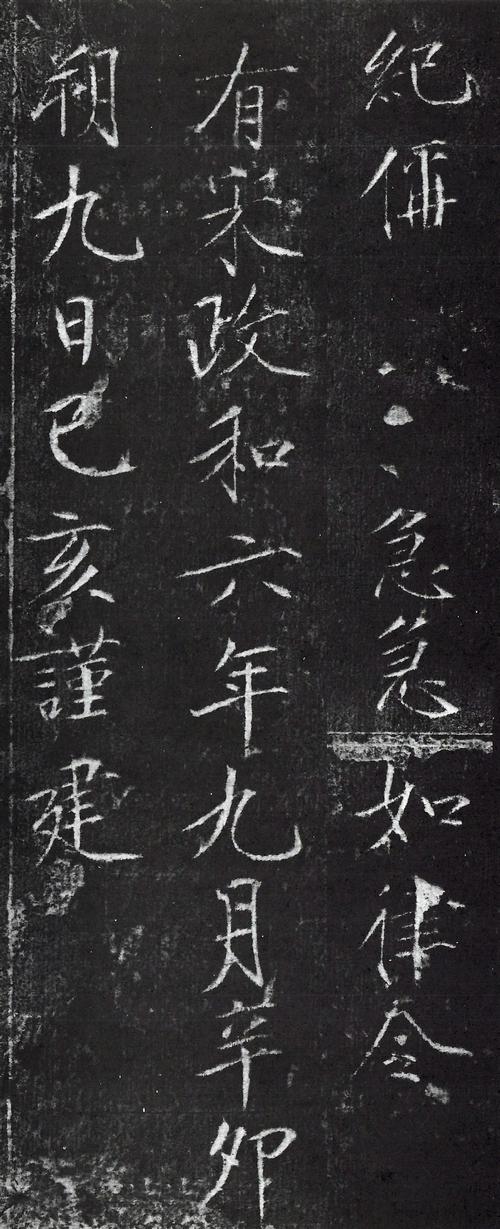 紀偁急急如律令
有宋政和六年九月辛卯
朔九日己亥謹建